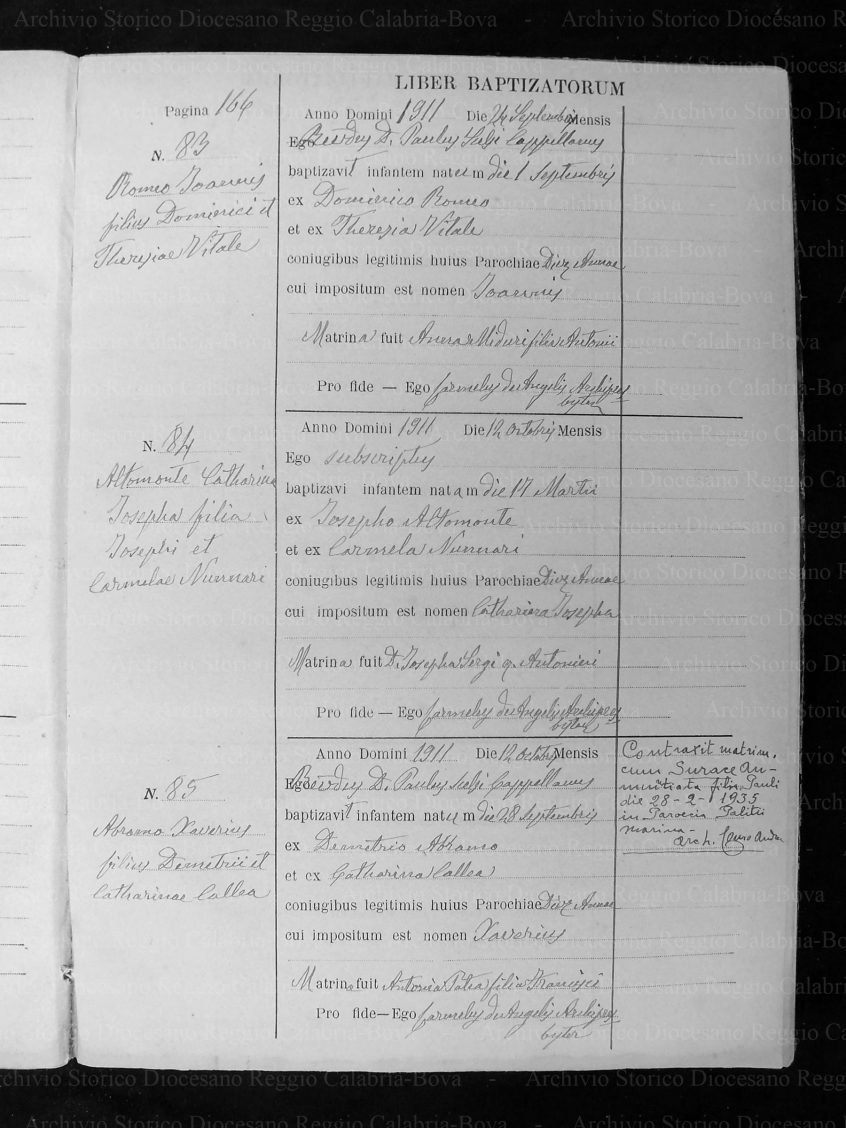 LIBER BAPTIZATORUM
Pagina 166
N. 83
Romeo Joannis
filius Dominici et
Theresiae Vitale
Anno Domini 1911 Die 24 Septembris Mensis
Ego Revdus D. Paulus Scelsi Cappellanus
baptizavit infantem natum die 1 Septembris
ex Dominico Romeo
et ex Theresia Vitale
coniugibus legitimis huius Parochiae Divæ Annae
cui impositum est nomen Joannis
Matrina fuit Anna Meduri filia Antonii
Pro fide — Ego Carmelus de Angelis Archipres
byter
N. 84
Altomonte Catharina
Josepha filia
Josephi et
Carmelae Nunnari
Anno Domini 1911 Die 12 Octobris Mensis
Ego subscriptus
baptizavi infantem natam die 17 Martii
ex Josepho Altomonte
et ex Carmela Nunnari
coniugibus legitimis huius Parochiae Divæ Annae
cui impositum est nomen Catharina Josepha
Matrina fuit D. Josepha Sergi q. Antonini
Pro fide — Ego Carmelus de Angelis Archipres
byter
N. 85
Abramo Xaverius
filius Demetrii et
Catharinae Callea
Anno Domini 1911 Die 12 Octobris Mensis
Ego Revdus D. Paulus Scelsi Cappellanus
baptizavit infantem natum die 28 Septembris
ex Demetrio Abramo
et ex Catharina Callea
coniugibus legitimis huius Parochiae Divæ Annae
cui impositum est nomen Xaverius
Matrina fuit Antonia filia Francisci
Pro fide — Ego Carmelus de Angelis Archipres
byter
Contraxit matrim.
cum Surace An-
nuntiata filia Pauli
die 28-2-1935
in Paroecia
marina -
arch.
Archivio Storico Diocesano Reggio Calabria-Bova